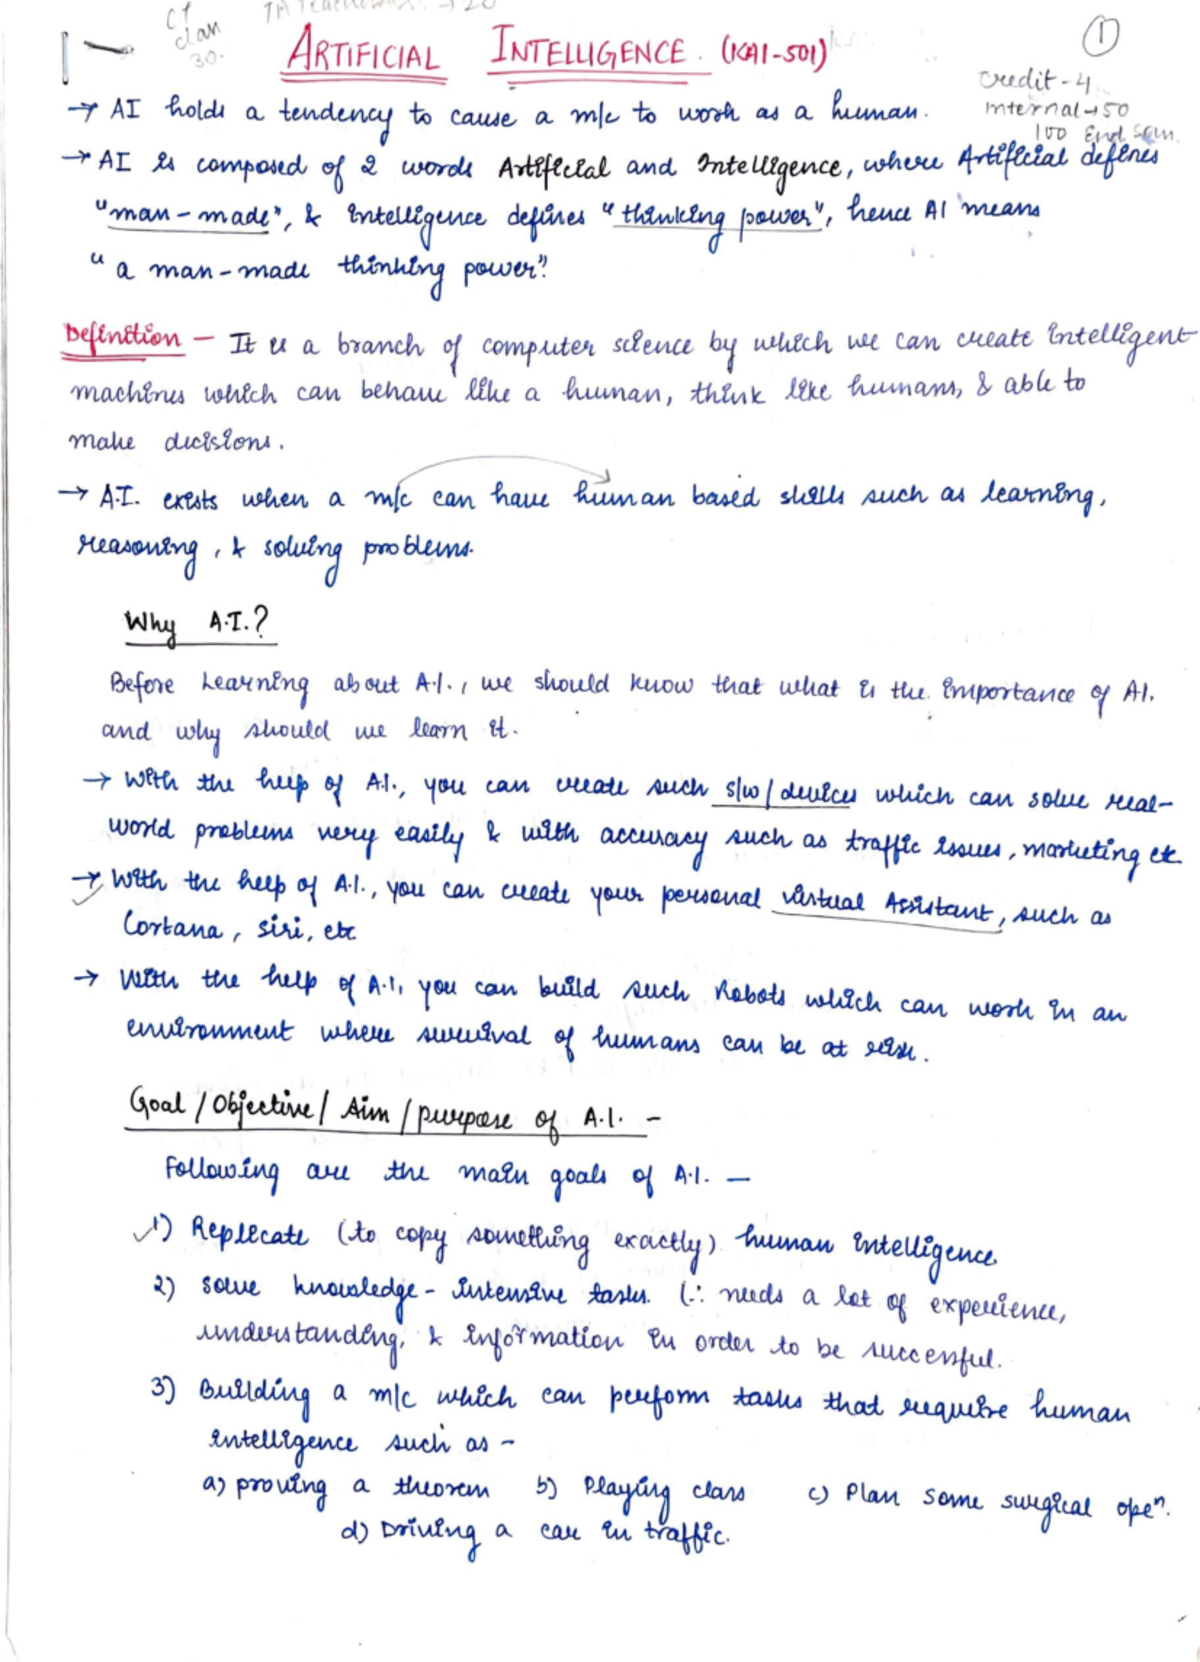 CT
TA
class
30.
1
ARTIFICIAL INTELLIGENCE. (KAI-501)
Credit - 4
Internal → 50
100 End Sem.
→ AI holds a tendency to cause a m/c to work as a human.
→ AI is composed of 2 words Artificial and Intelligence, where Artificial defines
"man-made", & intelligence defines "thinking power", hence AI means
"a man-made thinking power".
Definition — It is a branch of computer science by which we can create intelligent
machines which can behave like a human, think like humans, & able to
make decisions.
→ A.I. exists when a m/c can have human based skills such as learning,
reasoning, & solving problems.
Why A.I.?
Before Learning about A.I., we should know that what is the importance of AI.
and why should we learn it.
→ With the help of A.I., you can create such s/w / devices which can solve real-
world problems very easily & with accuracy such as traffic issues, marketing etc
→ With the help of A.I., you can create your personal virtual Assistant, such as
Cortana, siri, etc
→ With the help of A.I, you can build such Robots which can work in an
environment where survival of humans can be at risk.
Goal / Objective / Aim / purpose of A.I. -
Following are the main goals of A.I. —
1) Replicate (to copy something exactly) human intelligence
2) solve knowledge - intensive tasks. (∵ needs a lot of experience,
understanding, & information in order to be successful.
3) Building a m/c which can perform tasks that require human
intelligence such as -
a) proving a theorem b) Playing class c) Plan some surgical open.
d) Driving a car in traffic.